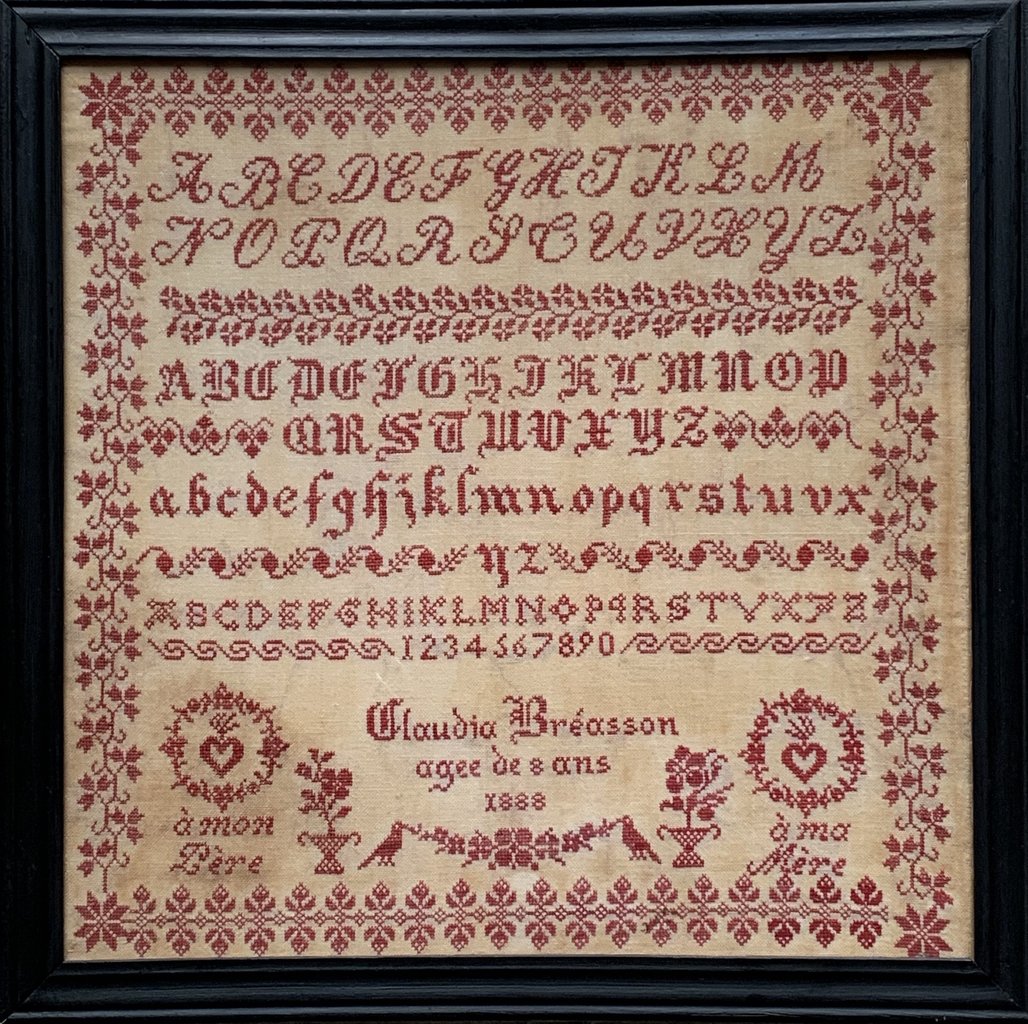 A B C D E F G H I K L M
N O P Q R S T U V X Y Z
A B C D E F G H I K L M N O P
Q R S T U V X Y Z
a b c d e f g h i k l m n o p q r s t u v x
y z
A B C D E F G H I K L M N O P Q R S T V X Y Z
1 2 3 4 5 6 7 8 9 0
Claudia Bréasson
agee de 8 ans
1888
à mon
Père
à ma
Mère